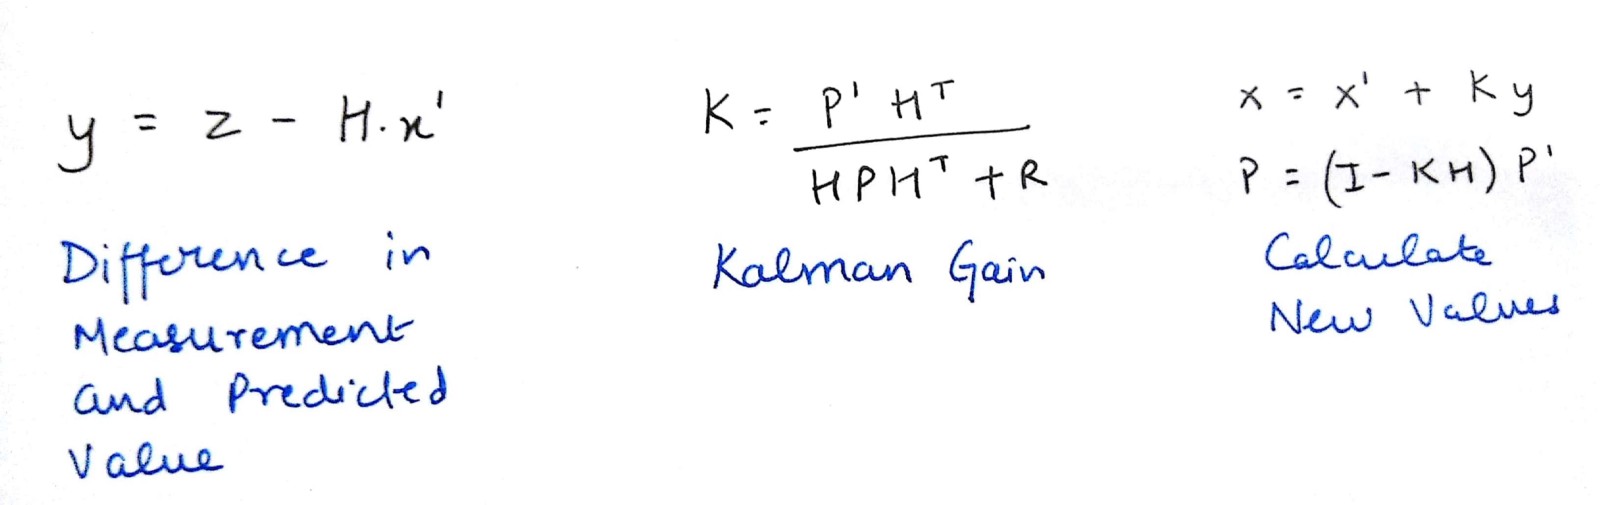 y = z - H.x'
Difference in
Measurement
and Predicted
Value
K = P' Hᵀ
HPHᵀ + R
Kalman Gain
x = x' + Ky
P = (I - KH) P'
Calculate
New Values